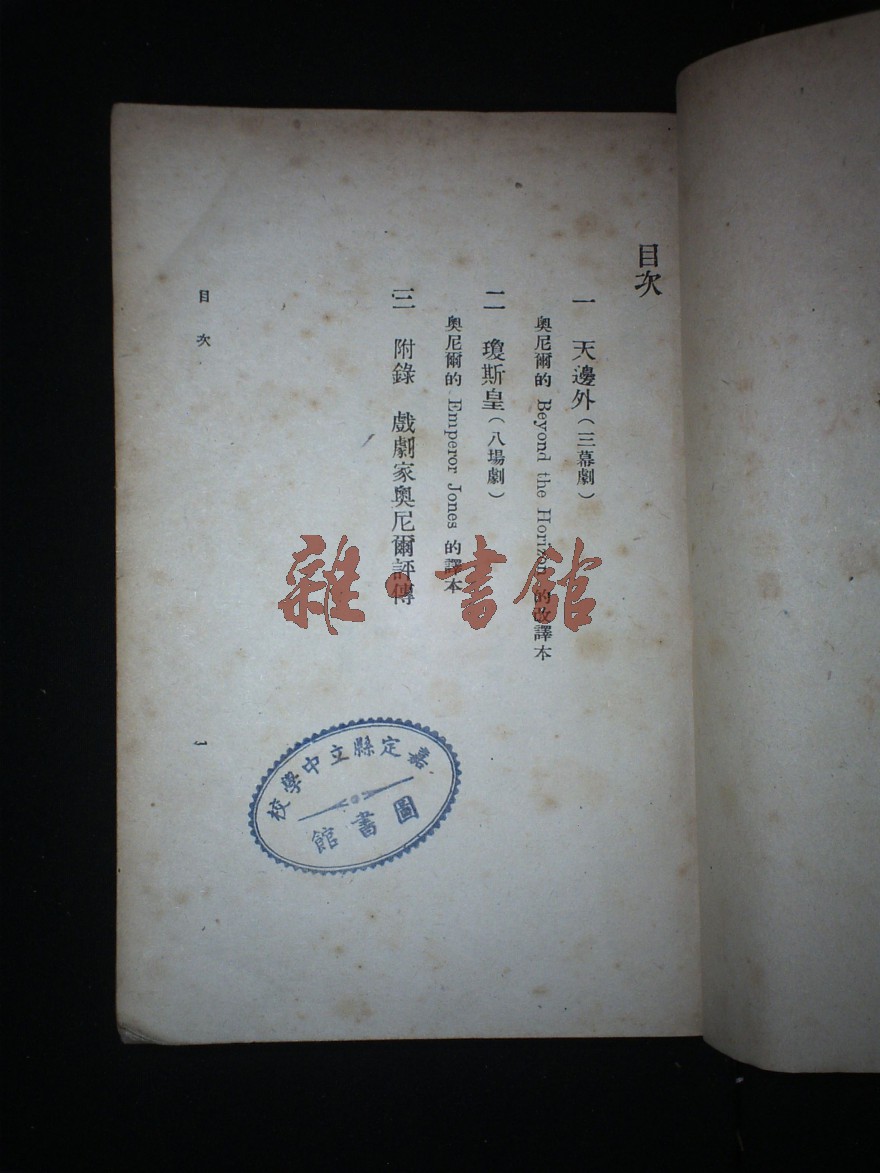 目次
一 天邊外（三幕劇）
奧尼爾的 Beyond the Horizon 的改譯本
二 瓊斯皇（八場劇）
奧尼爾的 Emperor Jones 的譯本
三 附錄 戲劇家奧尼爾評傳
目次
一
雜·書館
嘉定縣立中學校
圖書館